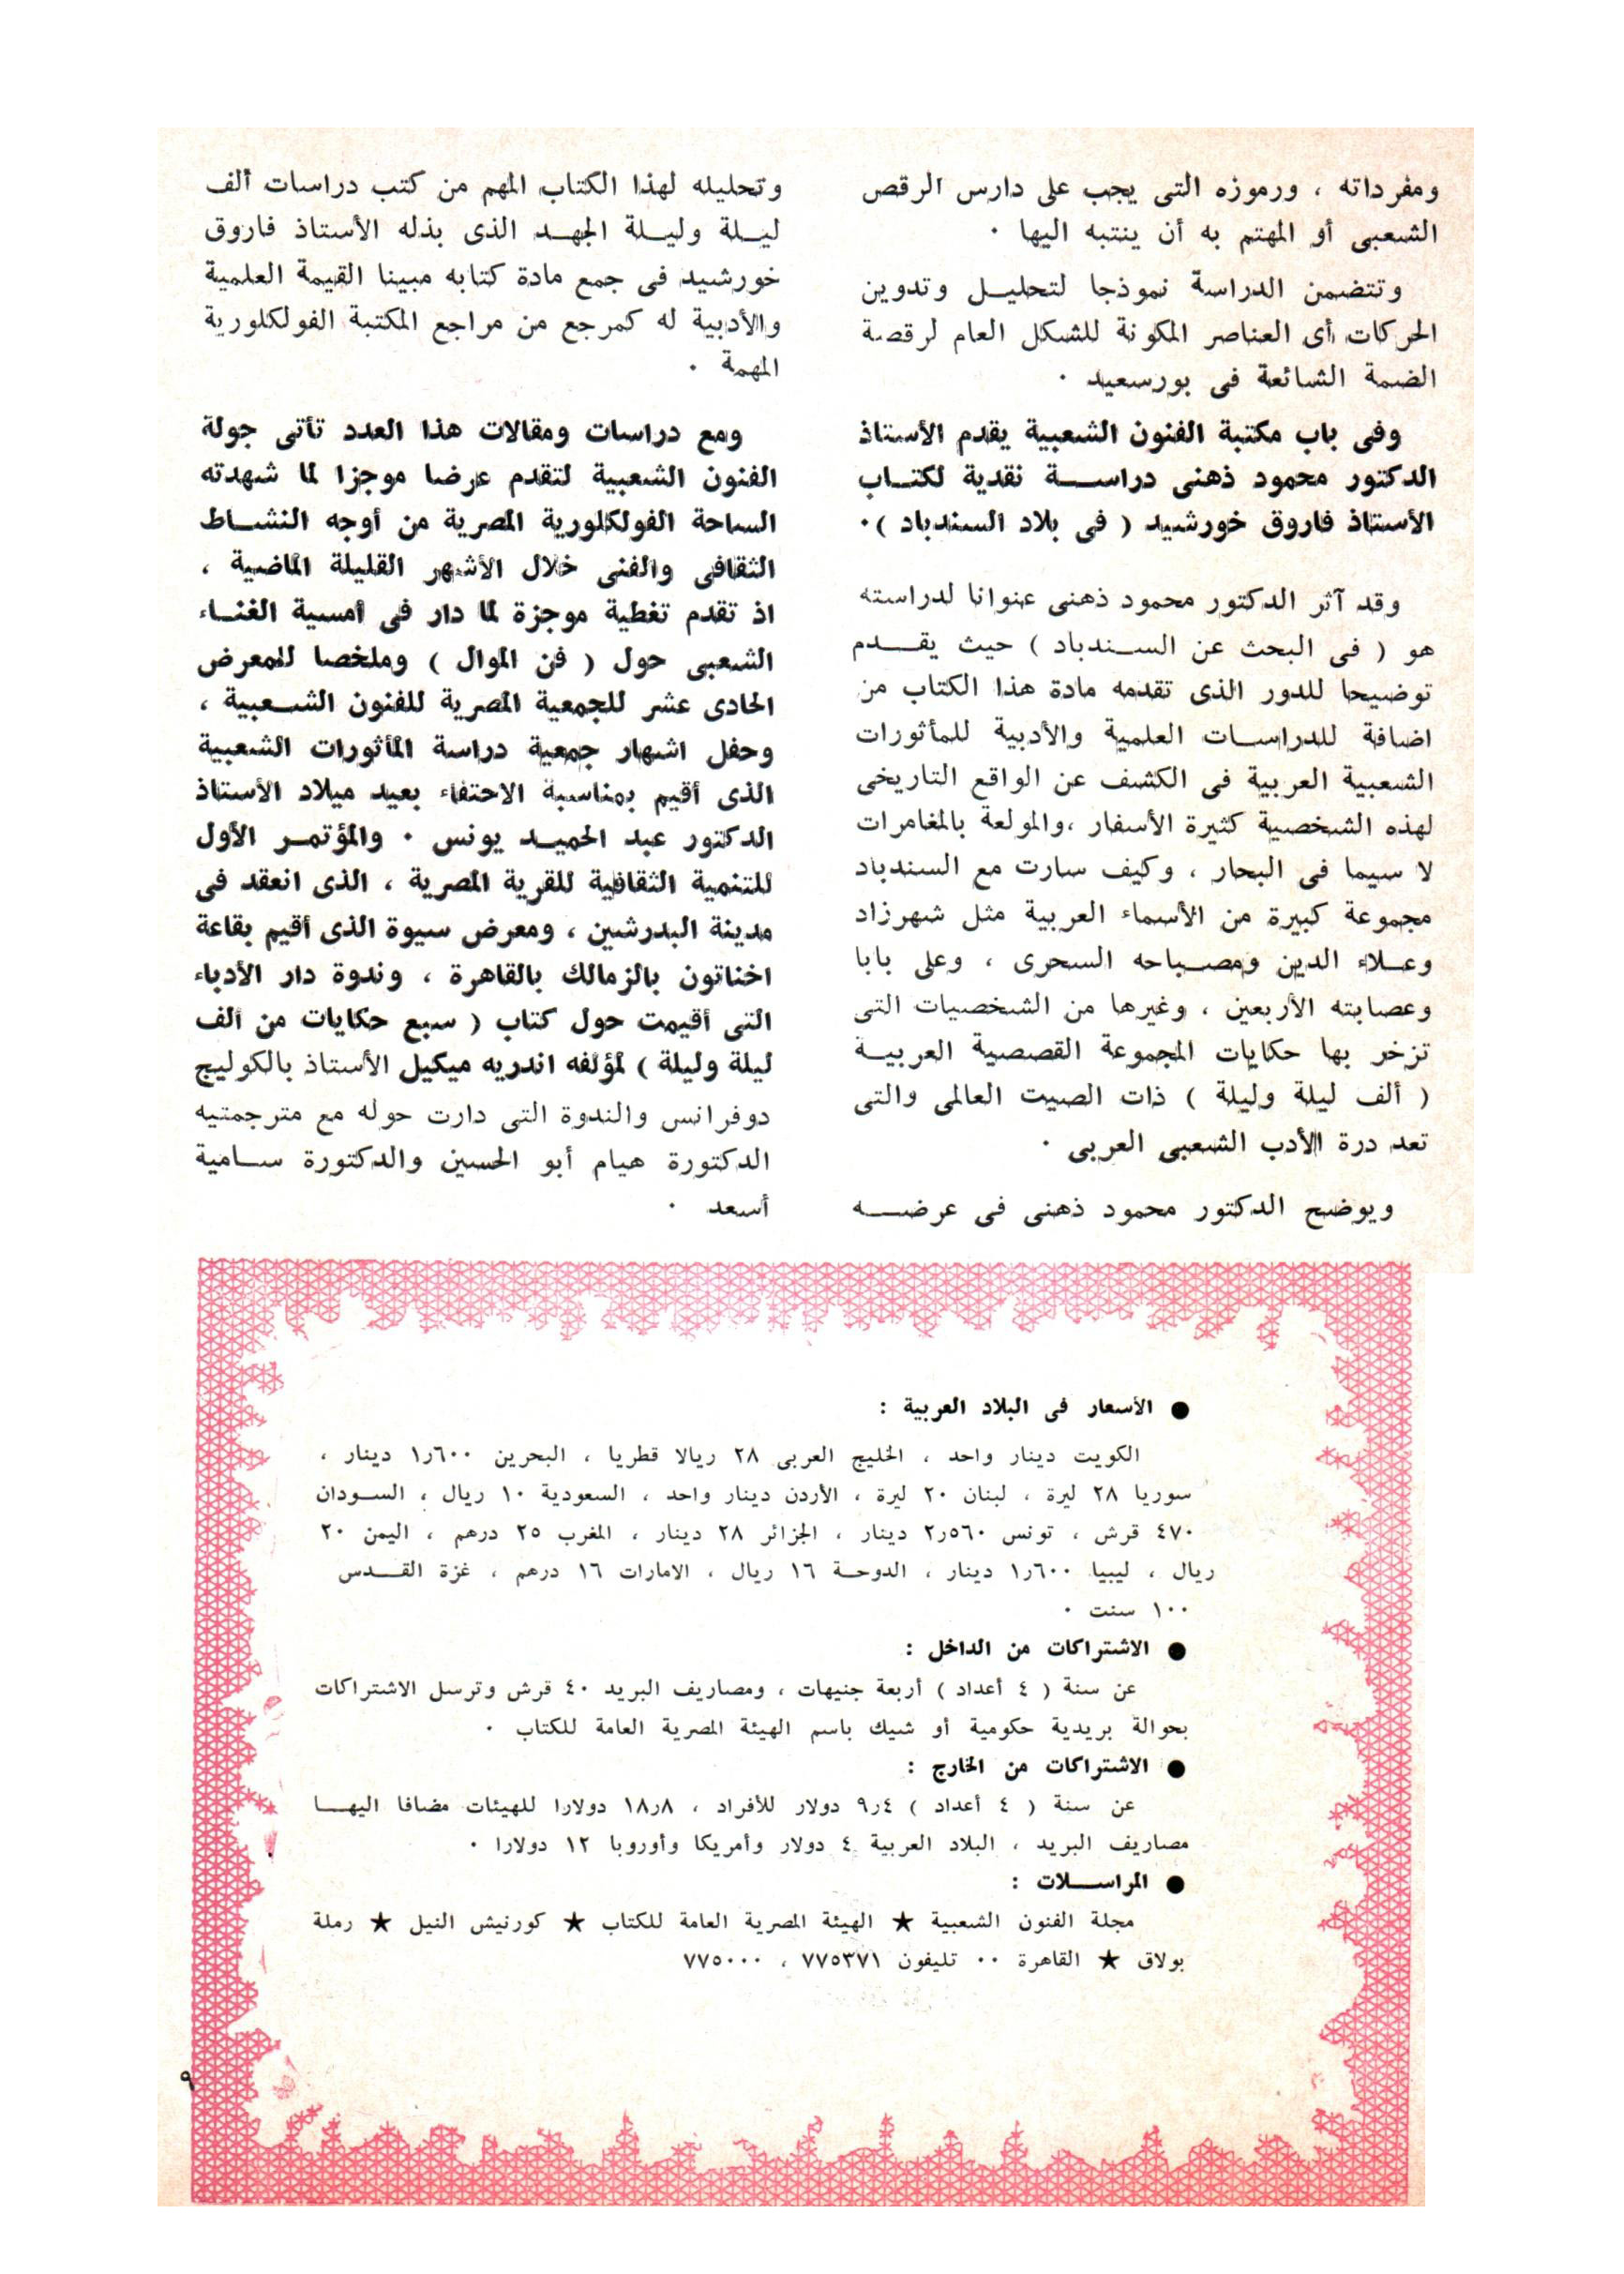 ومفرداته ، ورموزه التى يجب على دارس الرقص
الشعبى أو المهتم به أن ينتبه اليها ٠
وتتضمن الدراسة نموذجا لتحليل وتدوين
الحركات أى العناصر المكونة للشكل العام لرقصة
الضمة الشائعة فى بورسعيد ٠
وفى باب مكتبة الفنون الشعبية يقدم الأستاذ
الدكتور محمود ذهنى دراسة نقدية لكتاب
الأستاذ فاروق خورشيد ( فى بلاد السندباد )٠
وقد آثر الدكتور محمود ذهنى عنوانا لدراسته
هو ( فى البحث عن السندباد ) حيث يقدم
توضيحا للدور الذى تقدمه مادة هذا الكتاب من
اضافة للدراسات العلمية والأدبية للمأثورات
الشعبية العربية فى الكشف عن الواقع التاريخى
لهذه الشخصية كثيرة الأسفار ،والمولعة بالمغامرات
لا سيما فى البحار ، وكيف سارت مع السندباد
مجموعة كبيرة من الأسماء العربية مثل شهرزاد
وعلاء الدين ومصباحه السحرى ، وعلى بابا
وعصابته الأربعين ، وغيرها من الشخصيات التى
تزخر بها حكايات المجموعة القصصية العربية
( ألف ليلة وليلة ) ذات الصيت العالمى والتى
تعد درة الأدب الشعبى العربى ٠
ويوضح الدكتور محمود ذهنى فى عرضه
وتحليله لهذا الكتاب المهم من كتب دراسات ألف
ليلة وليلة الجهد الذى بذله الأستاذ فاروق
خورشيد فى جمع مادة كتابه مبينا القيمة العلمية
والأدبية له كمرجع من مراجع المكتبة الفولكلورية
المهمة ٠
ومع دراسات ومقالات هذا العدد تأتى جولة
الفنون الشعبية لتقدم عرضا موجزا لما شهدته
الساحة الفولكلورية المصرية من أوجه النشاط
الثقافى والفنى خلال الأشهر القليلة الماضية ،
اذ تقدم تغطية موجزة لما دار فى أمسية الغناء
الشعبى حول ( فن الموال ) وملخصا للمعرض
الحادى عشر للجمعية المصرية للفنون الشعبية ،
وحفل اشهار جمعية دراسة المأثورات الشعبية
الذى أقيم بمناسبة الاحتفاء بعيد ميلاد الأستاذ
الدكتور عبد الحميد يونس ٠ والمؤتمر الأول
للتنمية الثقافية للقرية المصرية ، الذى انعقد فى
مدينة البدرشين ، ومعرض سيوة الذى أقيم بقاعة
اخناتون بالزمالك بالقاهرة ، وندوة دار الأدباء
التى أقيمت حول كتاب ( سبع حكايات من ألف
ليلة وليلة ) لمؤلفه اندريه ميكيل الأستاذ بالكوليج
دوفرانس والندوة التى دارت حوله مع مترجمتيه
الدكتورة هيام أبو الحسين والدكتورة سامية
أسعد ٠
● الأسعار فى البلاد العربية :
الكويت دينار واحد ، الخليج العربى ٢٨ ريالا قطريا ، البحرين ١٫٦٠٠ دينار ،
سوريا ٢٨ ليرة ، لبنان ٢٠ ليرة ، الأردن دينار واحد ، السعودية ١٠ ريال ، السودان
٤٧٠ قرش ، تونس ٢٫٥٦٠ دينار ، الجزائر ٢٨ دينار ، المغرب ٢٥ درهم ، اليمن ٢٠
ريال ، ليبيا ١٫٦٠٠ دينار ، الدوحة ١٦ ريال ، الامارات ١٦ درهم ، غزة القدس
١٠٠ سنت ٠
● الاشتراكات من الداخل :
عن سنة ( ٤ أعداد ) أربعة جنيهات ، ومصاريف البريد ٤٠ قرش وترسل الاشتراكات
بحوالة بريدية حكومية أو شيك باسم الهيئة المصرية العامة للكتاب ٠
● الاشتراكات من الخارج :
عن سنة ( ٤ أعداد ) ٩٫٤ دولار للأفراد ، ١٨٫٨ دولارا للهيئات مضافا اليها
مصاريف البريد ، البلاد العربية ٤ دولار وأمريكا وأوروبا ١٢ دولارا ٠
● المراسلات :
مجلة الفنون الشعبية ★ الهيئة المصرية العامة للكتاب ★ كورنيش النيل ★ رملة
بولاق ★ القاهرة ٠٠ تليفون ٧٧٥٣٧١ ، ٧٧٥٠٠٠
٩